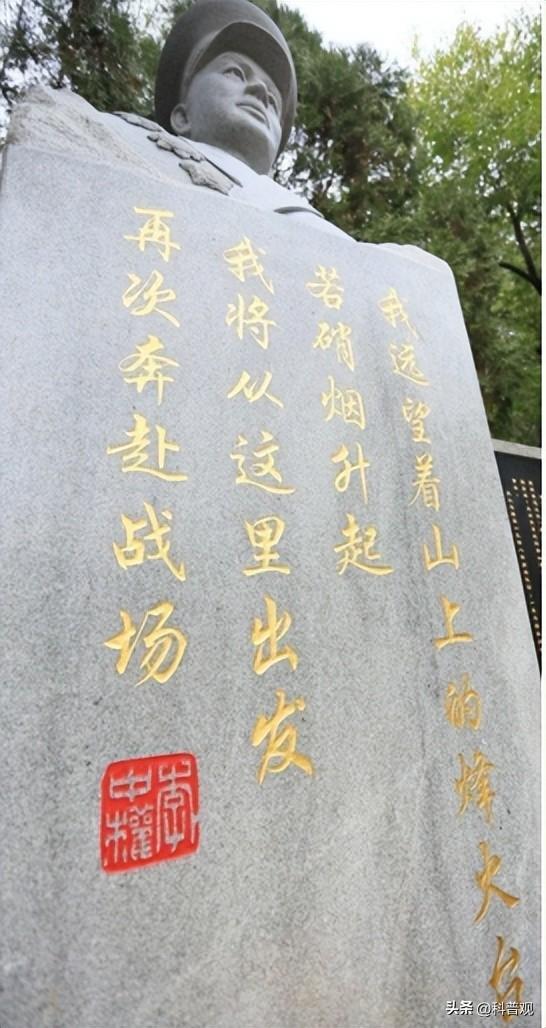 我远望着山上的烽火台
若硝烟升起
我将从这里出发
再次奔赴战场
李中权
头条 @科普观